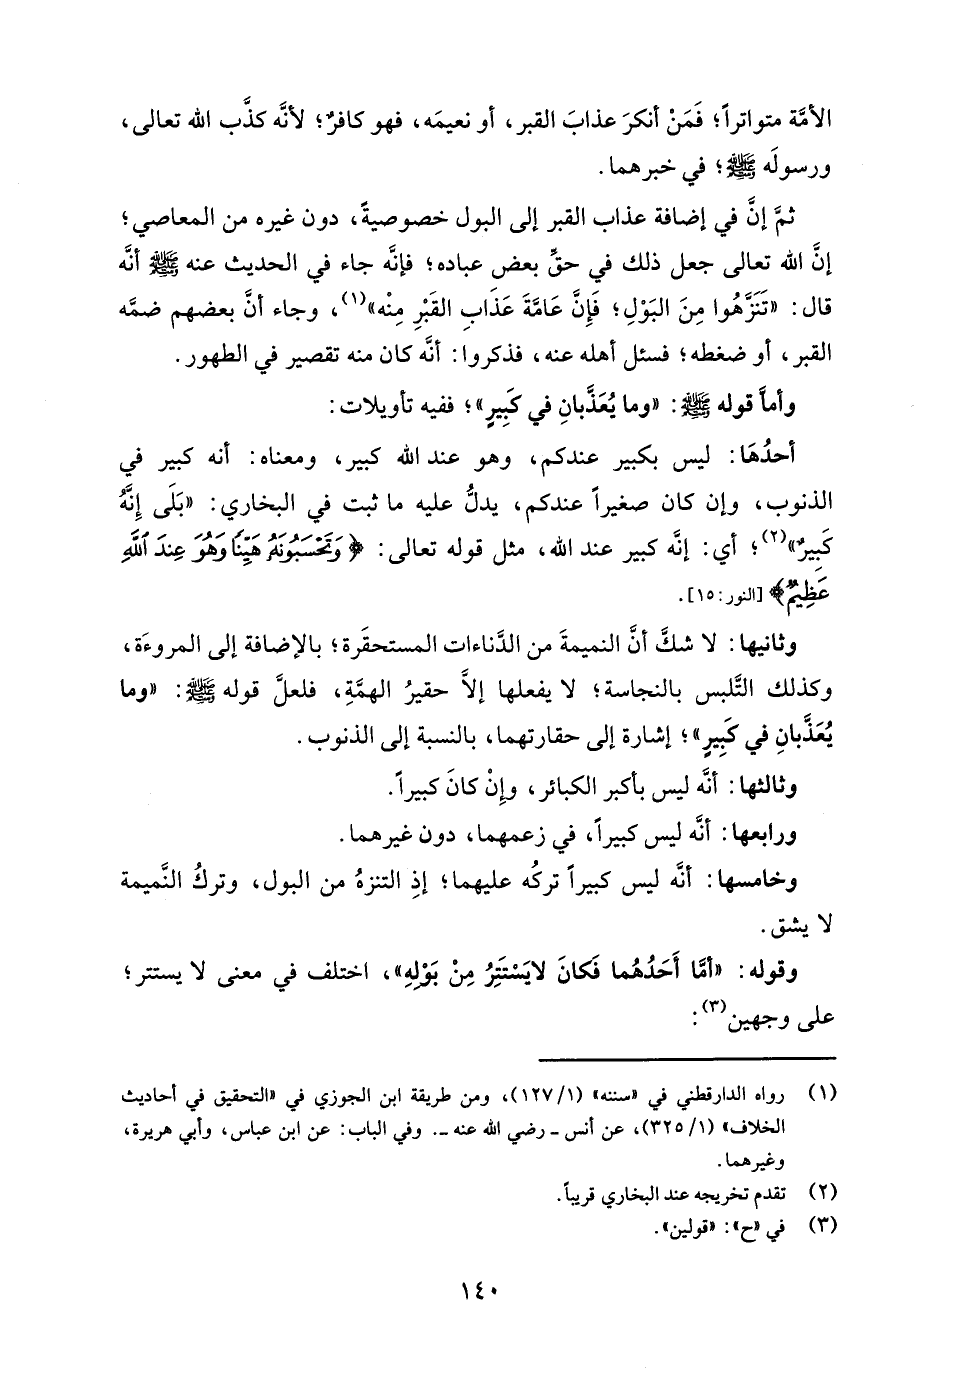 الأمَّة متواتراً؛ فَمَنْ أنكرَ عذابَ القبر، أو نعيمَه، فهو كافرٌ؛ لأنَّه كذَّب الله تعالى،
ورسولَه ﷺ؛ في خبرهما.
ثمَّ إنَّ في إضافة عذاب القبر إلى البول خصوصيةً، دون غيره من المعاصي؛
إنَّ الله تعالى جعل ذلك في حقِّ بعض عباده؛ فإنَّه جاء في الحديث عنه ﷺ أنَّه
قال: «تَنَزَّهُوا مِنَ البَوْلِ؛ فَإِنَّ عَامَّةَ عَذَابِ القَبْرِ مِنْه»(١)، وجاء أنَّ بعضهم ضمَّه
القبر، أو ضغطه؛ فسئل أهله عنه، فذكروا: أنَّه كان منه تقصير في الطهور.
وأمَّا قوله ﷺ: «وما يُعَذَّبانِ في كَبِيرٍ»؛ ففيه تأويلات:
أحدُهَا: ليس بكبير عندكم، وهو عند الله كبير، ومعناه: أنه كبير في
الذنوب، وإن كان صغيراً عندكم، يدلُّ عليه ما ثبت في البخاري: «بَلَى إِنَّهُ
كَبِيرٌ»(٢)؛ أي: إنَّه كبير عند الله، مثل قوله تعالى: ﴿وَتَحْسَبُونَهُ هَيِّنًا وَهُوَ عِندَ ٱللَّهِ
عَظِيمٌ﴾ [النور: ١٥].
وثانيها: لا شكَّ أنَّ النميمةَ من الدَّناءات المستحقَرة؛ بالإضافة إلى المروءَة،
وكذلك التَّلبس بالنجاسة؛ لا يفعلها إلاَّ حقيرُ الهمَّةِ، فلعلَّ قوله ﷺ: «وما
يُعَذَّبانِ في كَبِيرٍ»؛ إشارة إلى حقارتهما، بالنسبة إلى الذنوب.
وثالثها: أنَّه ليس بأكبر الكبائر، وإنْ كانَ كبيراً.
ورابعها: أنَّه ليس كبيراً، في زعمهما، دون غيرهما.
وخامسها: أنَّه ليس كبيراً تركُه عليهما؛ إذِ التنزهُ من البول، وتركُ النَّميمة
لا يشق.
وقوله: «أمَّا أَحَدُهُما فَكانَ لايَسْتَتِرُ مِنْ بَوْلِهِ»، اختلف في معنى لا يستتر؛
على وجهين(٣):
(١) رواه الدارقطني في «سننه» (١/ ١٢٧)، ومن طريقة ابن الجوزي في «التحقيق في أحاديث
الخلاف» (١/ ٣٢٥)، عن أنس ـ رضي الله عنه ـ. وفي الباب: عن ابن عباس، وأبي هريرة،
وغيرهما.
(٢) تقدم تخريجه عند البخاري قريباً.
(٣) في «ح»: «قولين».
١٤٠